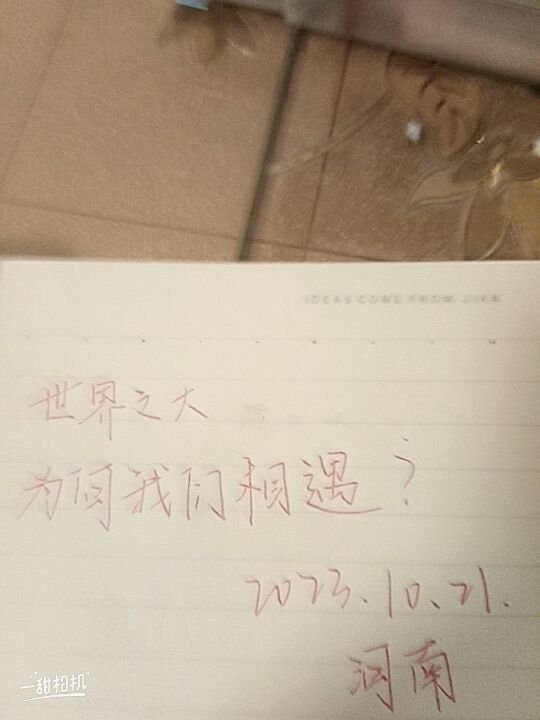 IDEAS COME FROM JIAN
世界之大
为何我们相遇?
2023.10.21.
河南
一甜相机